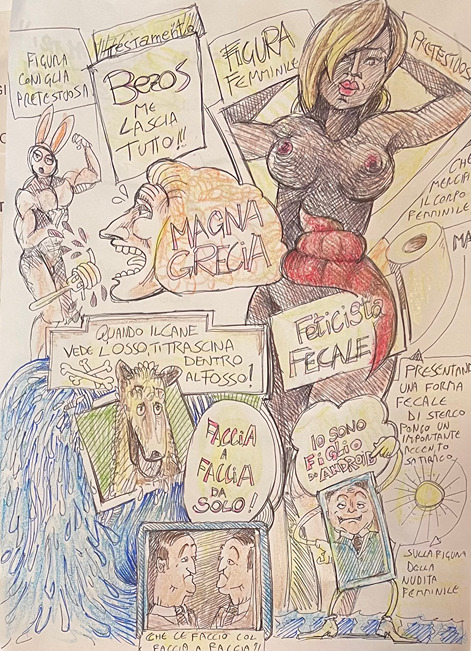 FIGURA
CONIGLIA
PRETESTUOSA
Testamento
BEZOS
ME
LASCIA
TUTTO!!!
FIGURA
FEMMINILE
PRETESTUOSA
CHE
MERCIFICA
IL CORPO
FEMMINILE
MAGNA
GRECIA
QUANDO IL CANE
VEDE L'OSSO, TI TRASCINA
DENTRO
AL FOSSO!
Feticista
FECALE
PRESENTANDO
UNA FORMA
FECALE
DI STERCO
PONGO UN
IMPORTANTE
ACCENTO
SATIRICO
SULLA FIGURA
DELLA
NUDITÀ
FEMMINILE
FACCIA
A
FACCIA
DA
SOLO!
IO SONO
FIGLIO
CHE LE FACCIO COL
FACCIA A FACCIA?!